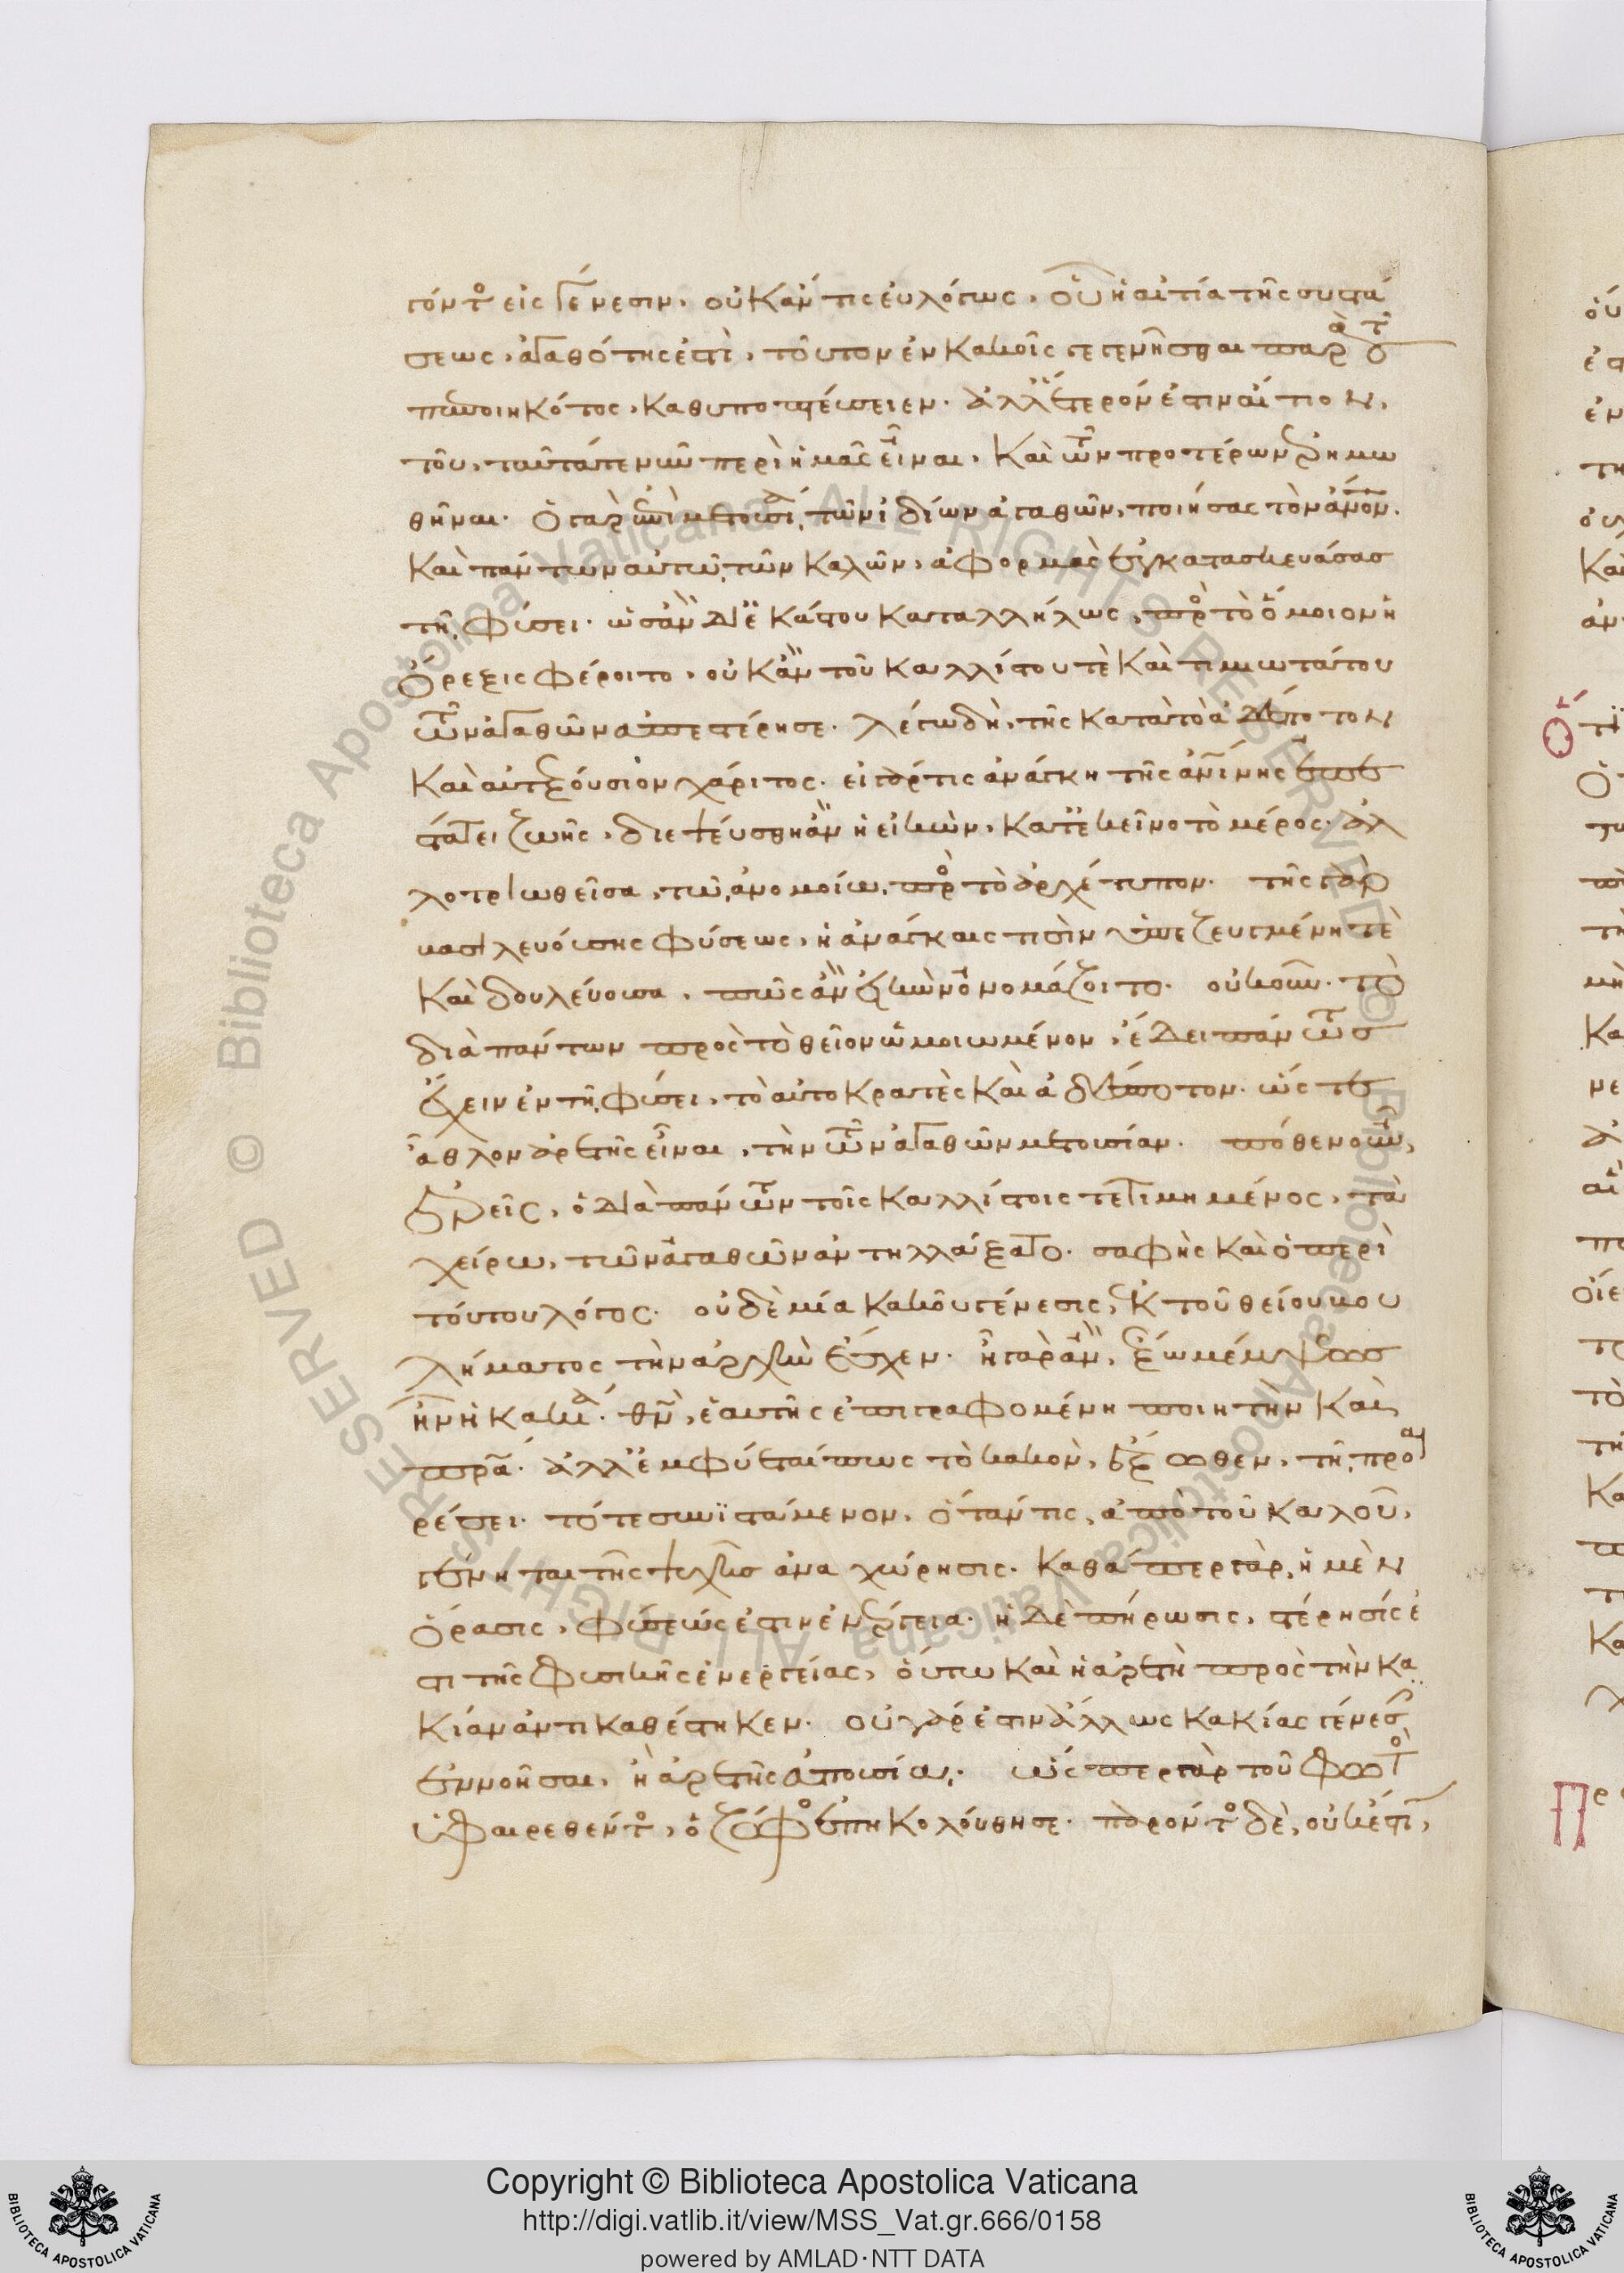 γόντος εἰς γένεσιν, οὐκ ἄν τις εὐλόγως, οὗ ἡ αἰτία τῆς συστά
σεως, ἀγαθότης ἐστὶ, τοῦτον ἐν κακοῖς γεγενῆσθαι παρὰ τοῦ
πεποιηκότος, καθυποπτεύσειεν. ἀλλ' ἕτερόν ἐστιν αἴτιον,
τοῦ, ταῦτά τε νῦν περὶ ἡμᾶς εἶναι, καὶ τῶν προτέρων ἐρημω
θῆναι. ὁ γὰρ ἐπὶ μετουσίᾳ, τῶν ἰδίων ἀγαθῶν, ποιήσας τὸν ἄνον.
καὶ πάντων αὐτῷ, τῶν καλῶν, ἀφορμὰς ἐγκατασκευάσας
τῇ φύσει. ὡς ἂν δι' ἑκάστου καταλλήλως, πρὸς τὸ ὅμοιον ἡ
ὄρεξις φέροιτο, οὐκ ἂν τοῦ καλλίστου τὲ καὶ τιμιωτάτου
τῶν ἀγαθῶν ἀπεστέρησε. λέγω δὴ, τῆς κατὰ τὸ ἀδέσποτον
καὶ αὐτεξούσιον χάριτος. εἰ γάρ τις ἀνάγκη τῆς ἀνίνης ἐπε
στάτει ζωῆς, διεψεύσθη ἂν ἡ εἰκὼν, κατ' ἐκεῖνο τὸ μέρος. ἀλ
λοτριωθεῖσα, τῷ ἀνομοίω, πρὸς τὸ ἀρχέτυπον. τῆς γὰρ
βασιλευούσης φύσεως, ἡ ἀνάγκαις τισὶν ὑπεζευγμένη τὲ
καὶ δουλεύουσα, πῶς ἂν εἰκὼν ὀνομάζοιτο. οὐκοῦν. τὸ
διὰ πάντων πρὸς τὸ θεῖον ὡμοιωμένον, ἔδει πάντως
ἔχειν ἐν τῇ φύσει, τὸ αὐτοκρατὲς καὶ ἀδέσποτον. ὥς τε
ἆθλον ἀρετῆς εἶναι, τὴν τῶν ἀγαθῶν μετουσίαν. πόθεν οὖν,
ἐρεῖς, ὁ διὰ πάντων τοῖς καλλίστοις τετιμημένος, τὰ
χείρω, τῶν ἀγαθῶν ἀντηλλάξατο. σαφὴς καὶ ὁ περὶ
τούτου λόγος. οὐδὲ μία κακοῦ γένεσις, ἐκ τοῦ θείου βου
λήματος τὴν ἀρχὴν ἔσχεν. ἦ γὰρ ἂν, ἔξω μέμψεως
ἦν ἡ κακία. θν, ἑαυτῆς ἐπιγραφομένη ποιητὴν καὶ
πρα. ἀλλ' ἐμφύεταί πως τὸ κακὸν, ἔξωθεν, τῇ προαι
ρέσει. τότε συνϊστάμενον, ὅτάν τις, ἀπὸ τοῦ καλοῦ,
γένηται τῆς ψυχῆς ἀναχώρησις. καθάπερ γὰρ, ἡ μὲν
ὅρασις, φύσεώς ἐστιν ἐνέργεια. ἡ δὲ πήρωσις, στέρησίς ἐ
στι τῆς φυσικῆς ἐνεργείας, οὕτω καὶ ἡ ἀρετὴ πρὸς τὴν κα
κίαν ἀντικαθέστηκεν. οὐ γάρ ἐστιν ἄλλως κακίας γένεσιν
ἐννοῆσαι, ἢ ἀρετῆς ἀπουσία. ὥς περ γὰρ τοῦ φωτὸς
ὑφαιρεθέντος, ὁ ζόφος ἐπηκολούθησε. παρόντος δὲ, οὐκ ἔστι,